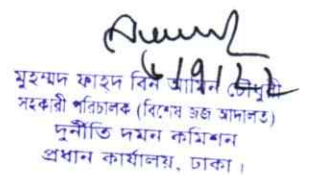 ৬/9/22
মুহম্মদ ফাহদ বিন আমিন চৌধুরী
সহকারী পরিচালক (বিশেষ জজ আদালত)
দুর্নীতি দমন কমিশন
প্রধান কার্যালয়, ঢাকা।